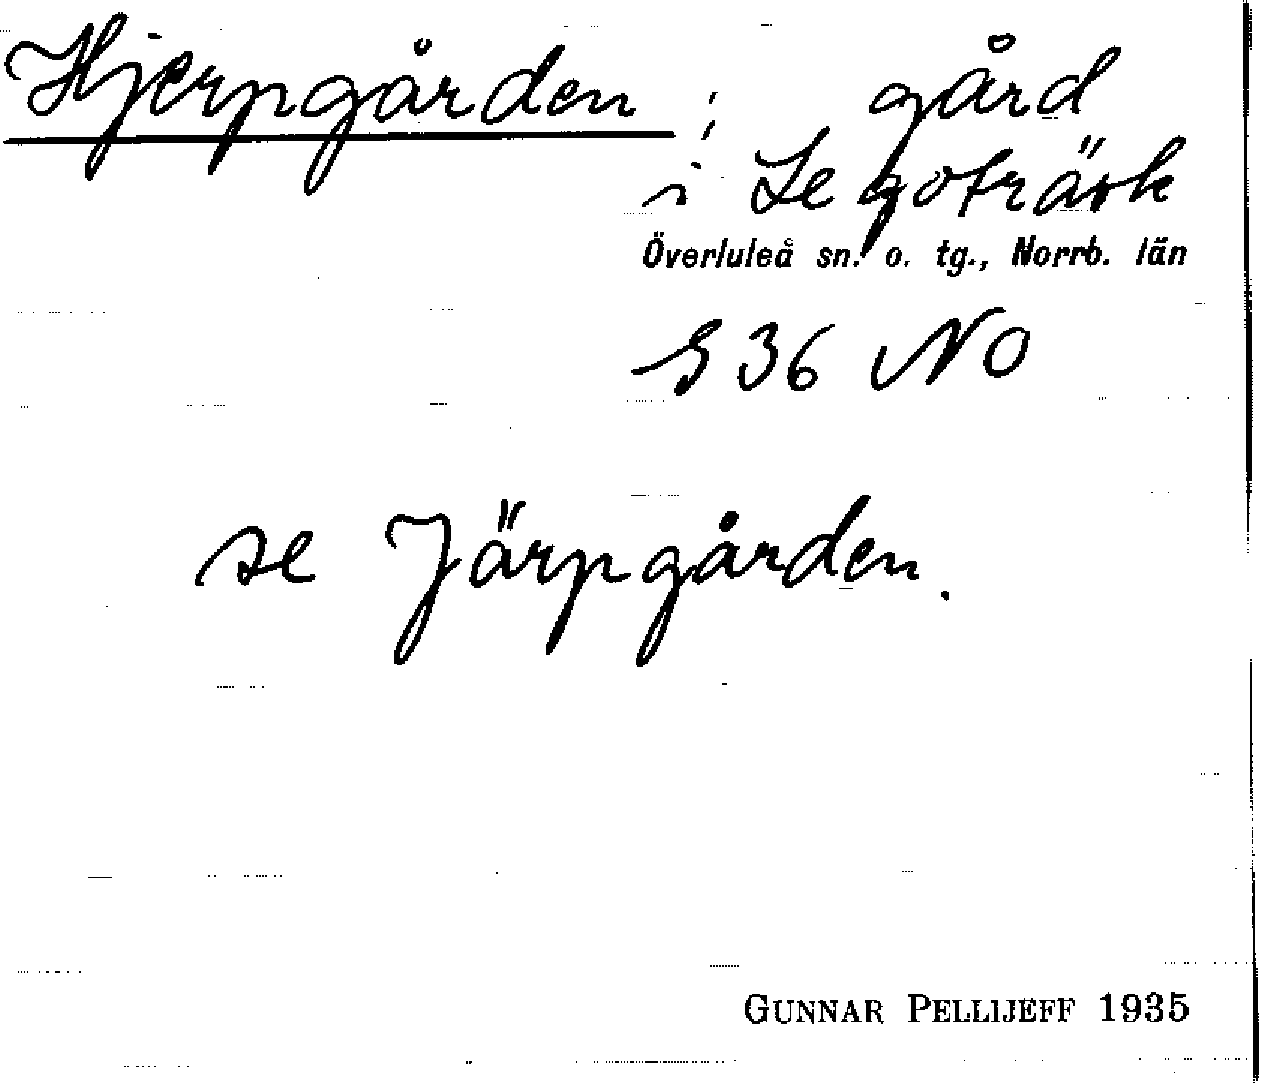 Hjerpgården ; gård
i Legoträsk
Överluleå sn. o. tg., Norrb. län
S 36 NO
se Järpgården.
GUNNAR PELLIJEFF 1935